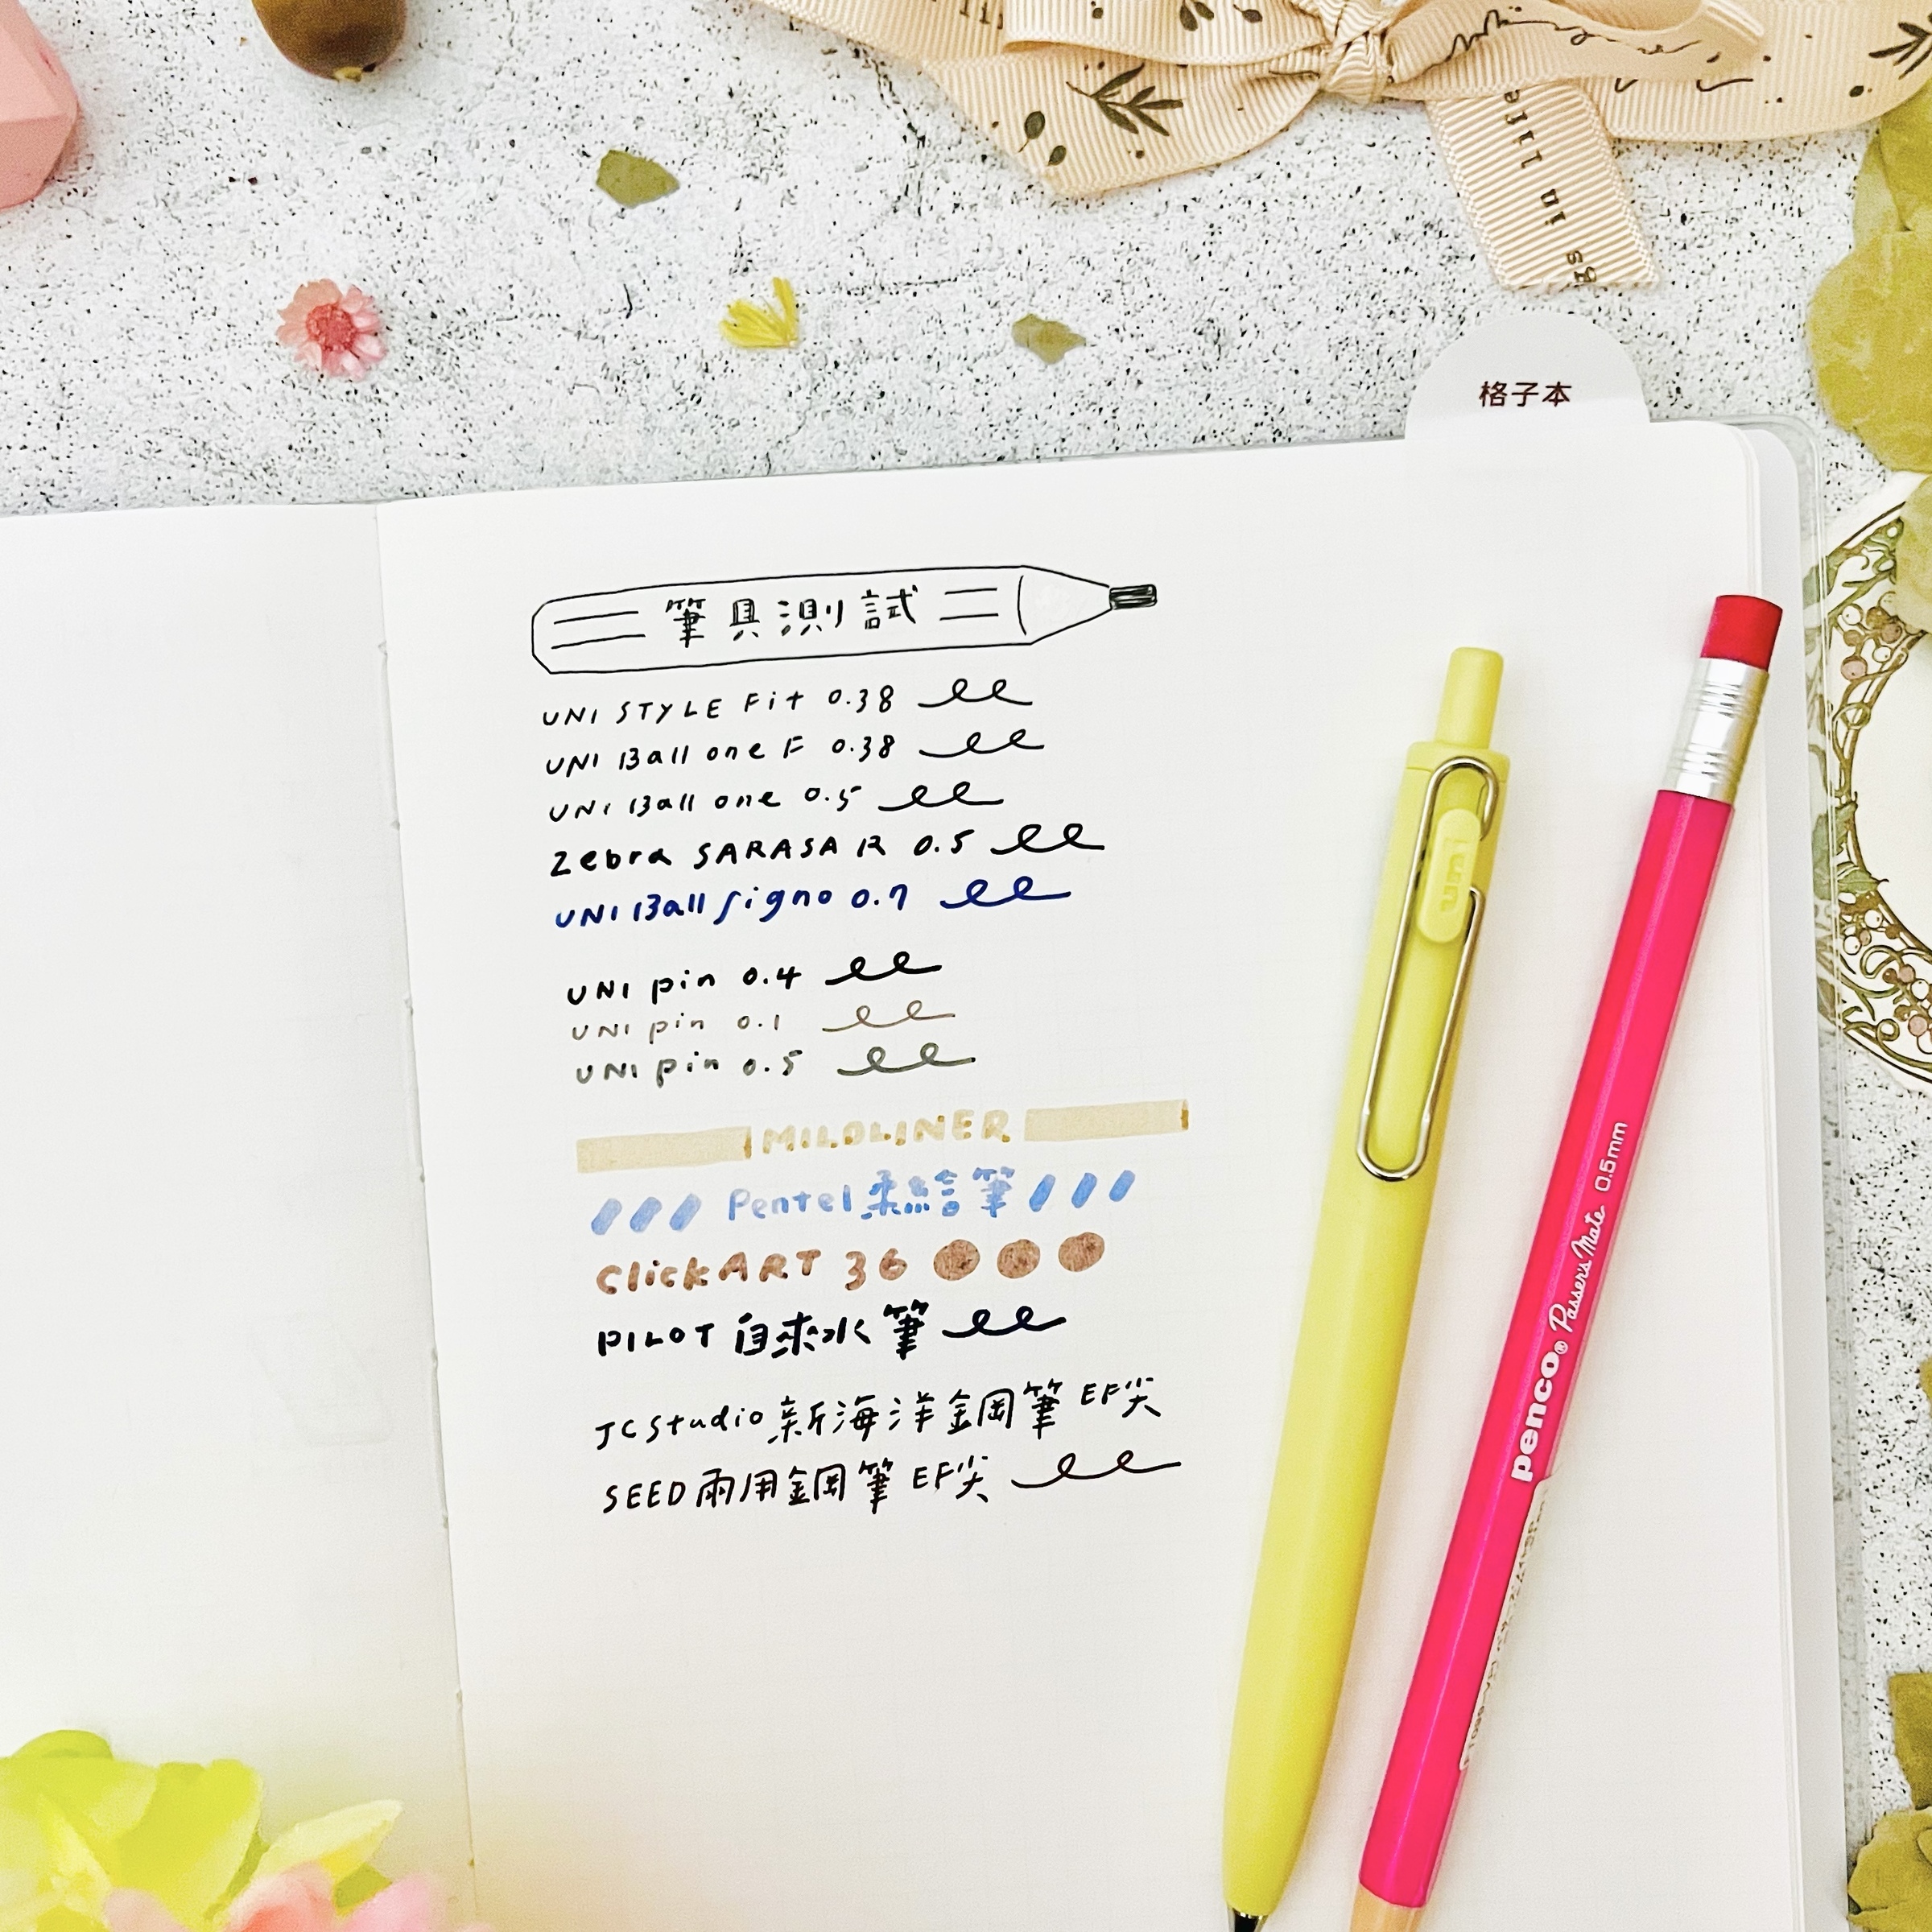 格子本
筆具測試
UNI STYLE Fit 0.38
UNI Ball one F 0.38
UNI Ball one 0.5
Zebra SARASA R 0.5
UNI Ball signo 0.7
UNI pin 0.4
UNI pin 0.1
UNI pin 0.5
MILDLINER
Pentel柔繪筆
ClickART 36
PILOT 自來水筆
JC Studio 新海洋鋼筆 EF尖
SEED兩用鋼筆 EF尖
uni
penco® Passers Mate 0.5mm
in life